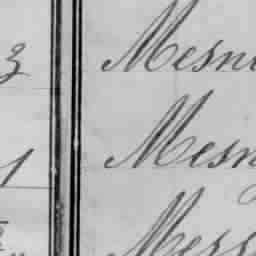 3 Mesn
1 Mesn
Mess